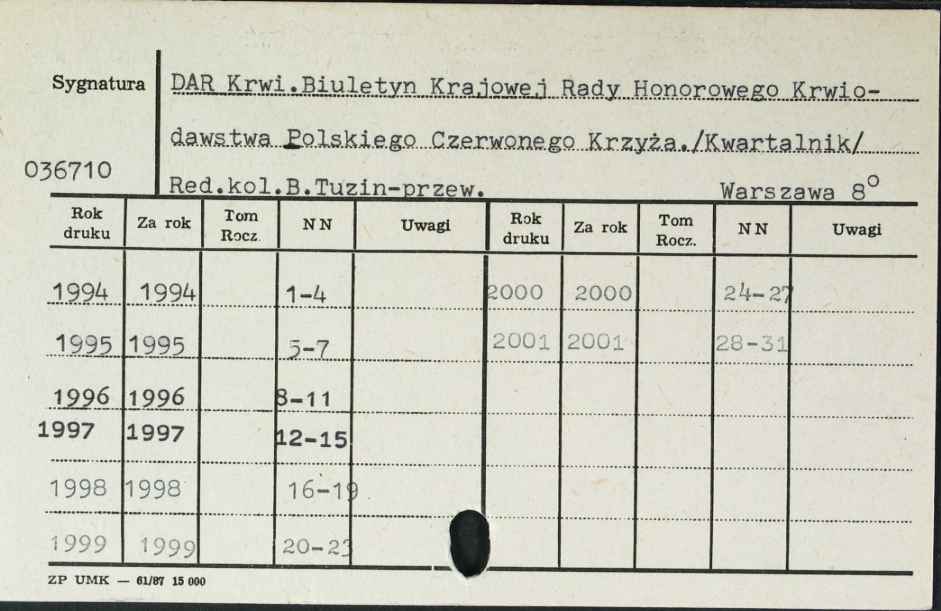 Sygnatura DAR Krwi.Biuletyn Krajowej Rady Honorowego Krwio-
dawstwa Polskiego Czerwonego Krzyża./Kwartalnik/
036710
Red.kol.B.Tuzin-przew. Warszawa 8°
Rok druku Za rok Tom Rocz. NN Uwagi Rok druku Za rok Tom Rocz. NN Uwagi
1994 1994 1-4 2000 2000 24-27
1995 1995 5-7 2001 2001 28-31
1996 1996 8-11
1997 1997 12-15
1998 1998 16-19
1999 1999 20-23
ZP UMK — 61/87 15 000